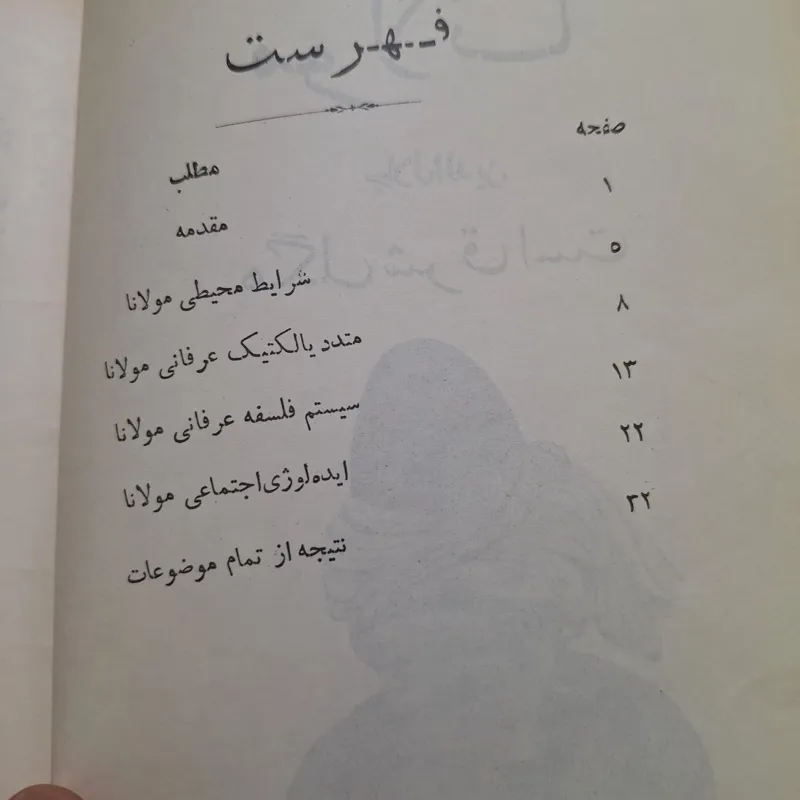 فهرست
صفحه مطلب
۱ مقدمه
۵ شرایط محیطی مولانا
۸ متددیالکتیک عرفانی مولانا
۱۳ سیستم فلسفه عرفانی مولانا
۲۲ ایده‌لوژی اجتماعی مولانا
۳۲ نتیجه از تمام موضوعات